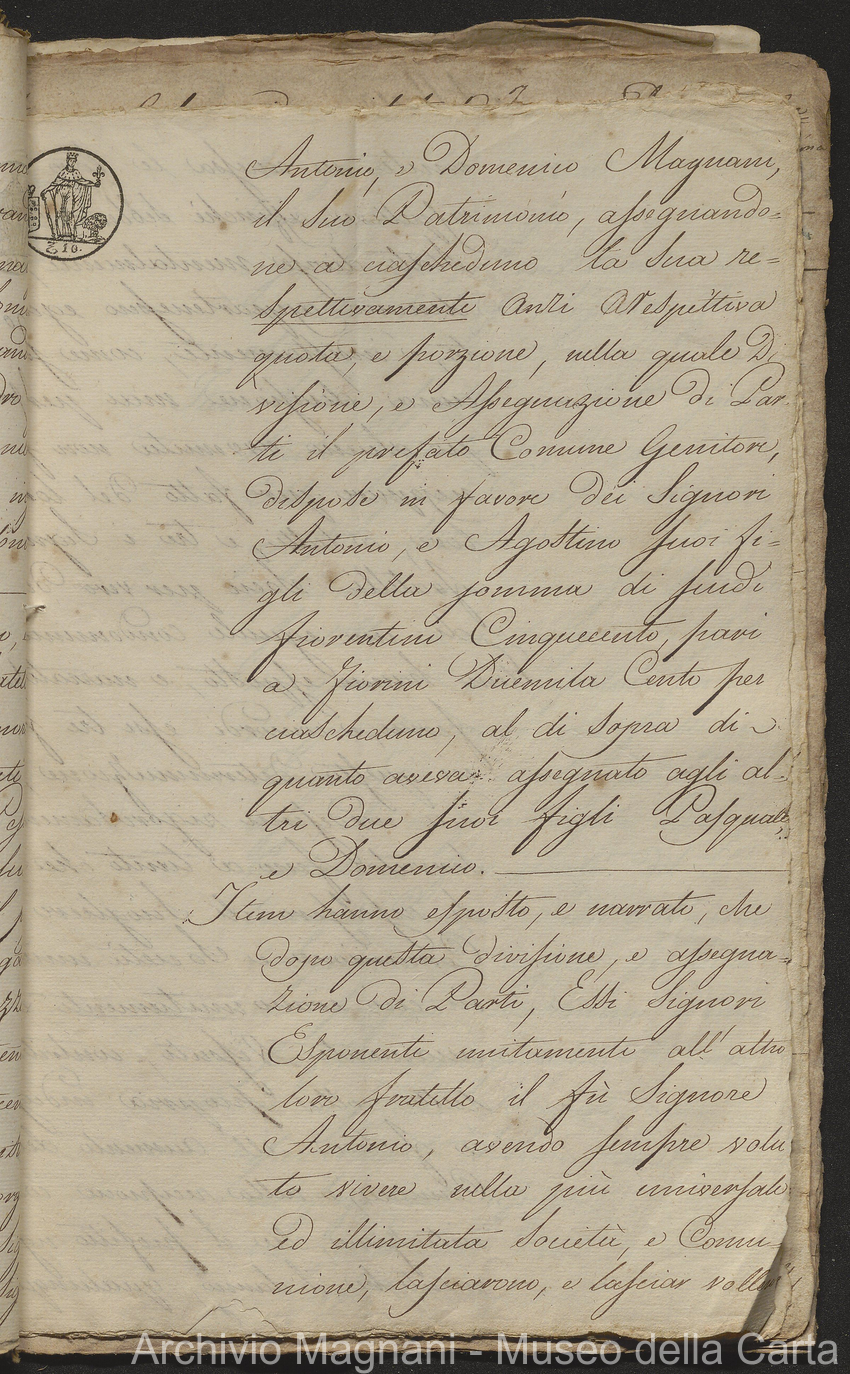 Antonio, e Domenico Magnani,
il Suo Patrimonio, assegnando=
ne a ciascheduno la sua re=
spettivamente anzi Respettiva
quota, e porzione, nella quale Di
visione, e Assegnazione di Par
ti il prefato Comune Genitore,
dispose in favore dei Signori
Antonio, e Agostino suoi fi=
gli della somma di scudi
fiorentini Cinquecento, pari
a Fiorini Duemila Cento per
ciascheduno, al di sopra di
quanto aveva assegnato agli al=
tri due suoi figli Pasquale
e Domenico.
Item hanno esposto, e narrato, che
dopo questa divisione, e assegna=
zione di Parti, Essi Signori
Esponenti unitamente all'altro
loro fratello il fù Signore
Antonio, avendo sempre volu
to vivere nella più universale
ed illimitata Società, e Comu=
nione, lasciarono, e lasciar vollero
Archivio Magnani - Museo della Carta